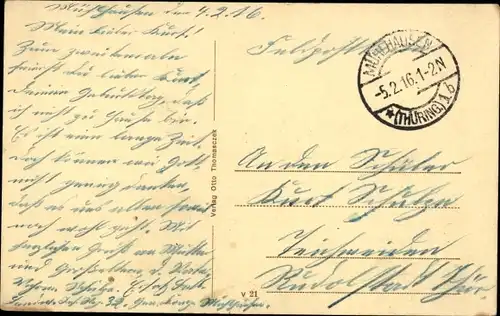 Mühlhausen den 4.2.16.
Mein lieber Kurt!
Zum zweitenmale
feierst Du lieber Kurt,
Deinen Geburtstag, daß
ich nicht zu Hause bin.
Es ist eine lange Zeit,
doch können wir Gott
nicht genug danken,
daß es uns allen soweit
noch wohl geht. Mit
herzlichen Gruß an Mutter
und Großeltern d. Vater
Schulze.
32. Mühlhausen
Feldpostkarte
MÜHLHAUSEN
-5.2.16.1-2N
*(THÜRING.)1b
An den Schüler
Kurt Schulze
Teichweiden
Rudolstadt Thür
Verlag Otto Thomasczek
V 21